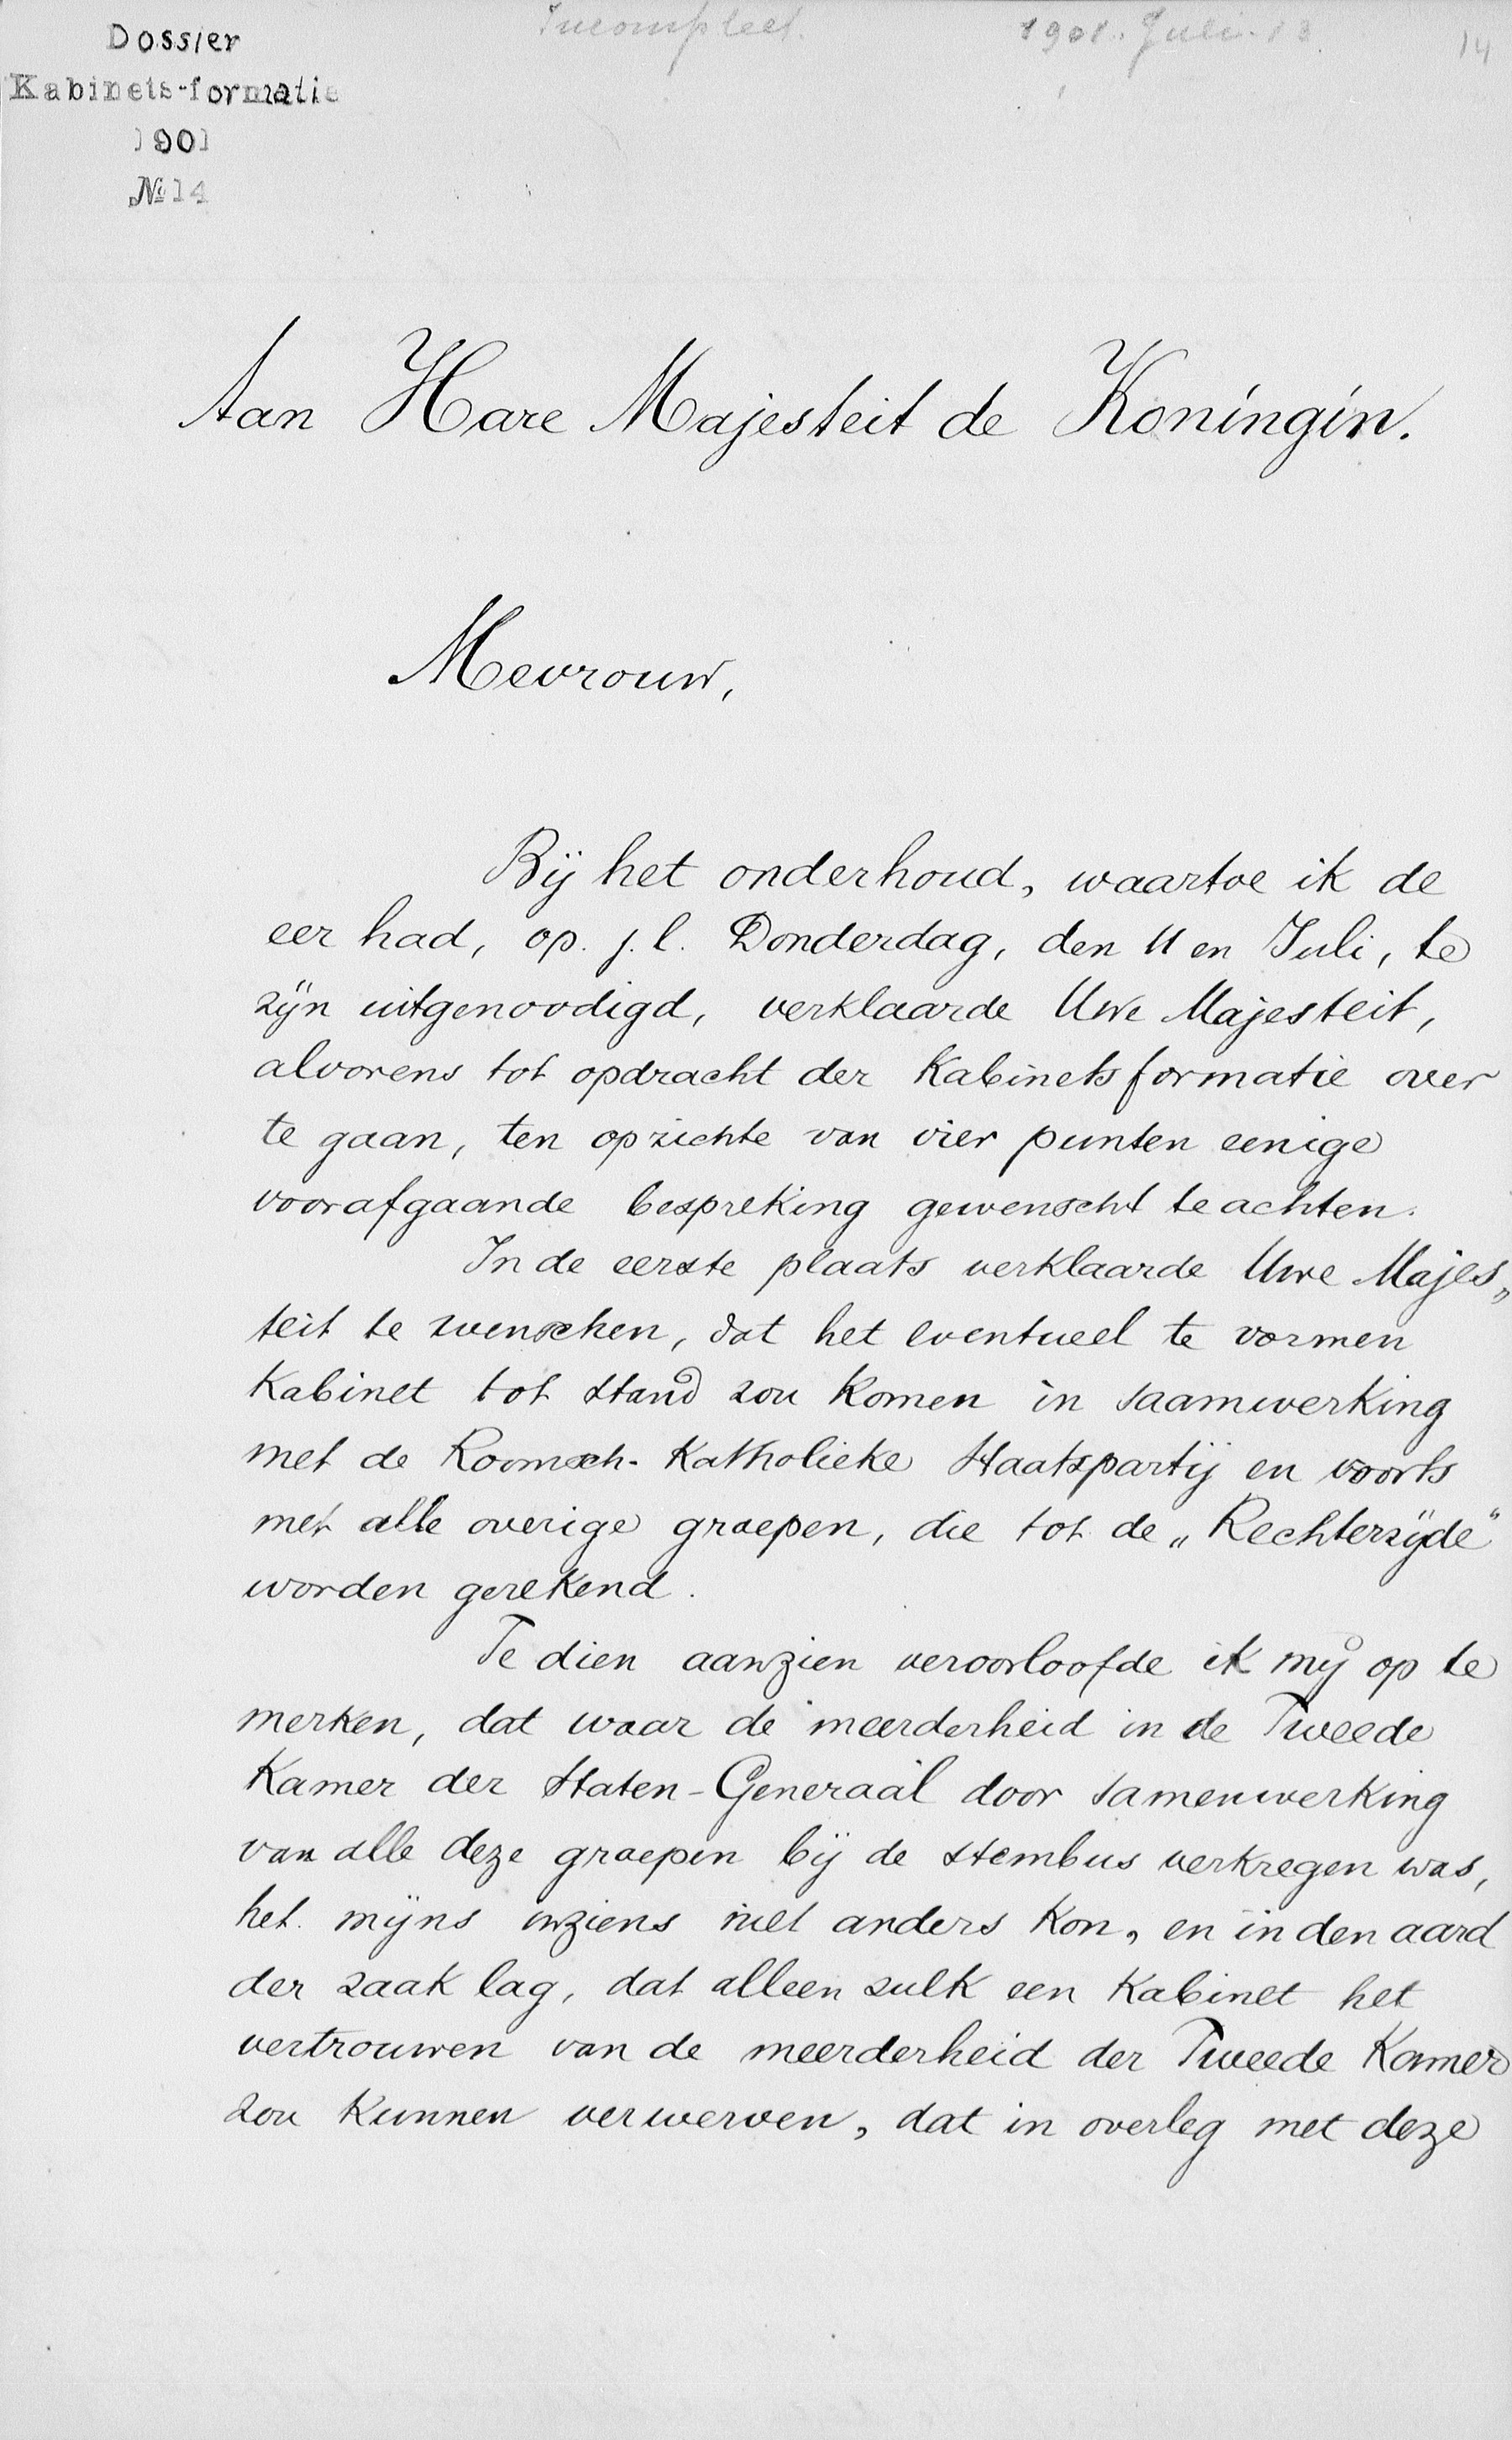 Incompleet. 1901. Juli. 13 14
Dossier
Kabinets-formatie
1901
№ 14
Aan Hare Majesteit de Koningin.
Mevrouw,
Bij het onderhoud, waartoe ik de
eer had, op j.l. Donderdag, den 11 en Juli, te
zijn uitgenoodigd, verklaarde Uwe Majesteit,
alvorens tot opdracht der Kabinetsformatie over
te gaan, ten opzichte van vier punten eenige
voorafgaande bespreking gewenscht te achten.
In de eerste plaats verklaarde Uwe Majes„
teit te wenschen, dat het eventueel te vormen
Kabinet tot stand zou komen in saamwerking
met de Roomsch-Katholieke Staatspartij en voorts
met alle overige groepen, die tot de „Rechterzijde"
worden gerekend.
Te dien aanzien veroorloofde ik mij op te
merken, dat waar de meerderheid in de Tweede
Kamer der Staten-Generaal door samenwerking
van alle deze groepen bij de stembus verkregen was,
het mijns inziens niet anders kon, en in den aard
der zaak lag, dat alleen zulk een Kabinet het
vertrouwen van de meerderheid der Tweede Kamer
zou kunnen verwerven, dat in overleg met deze